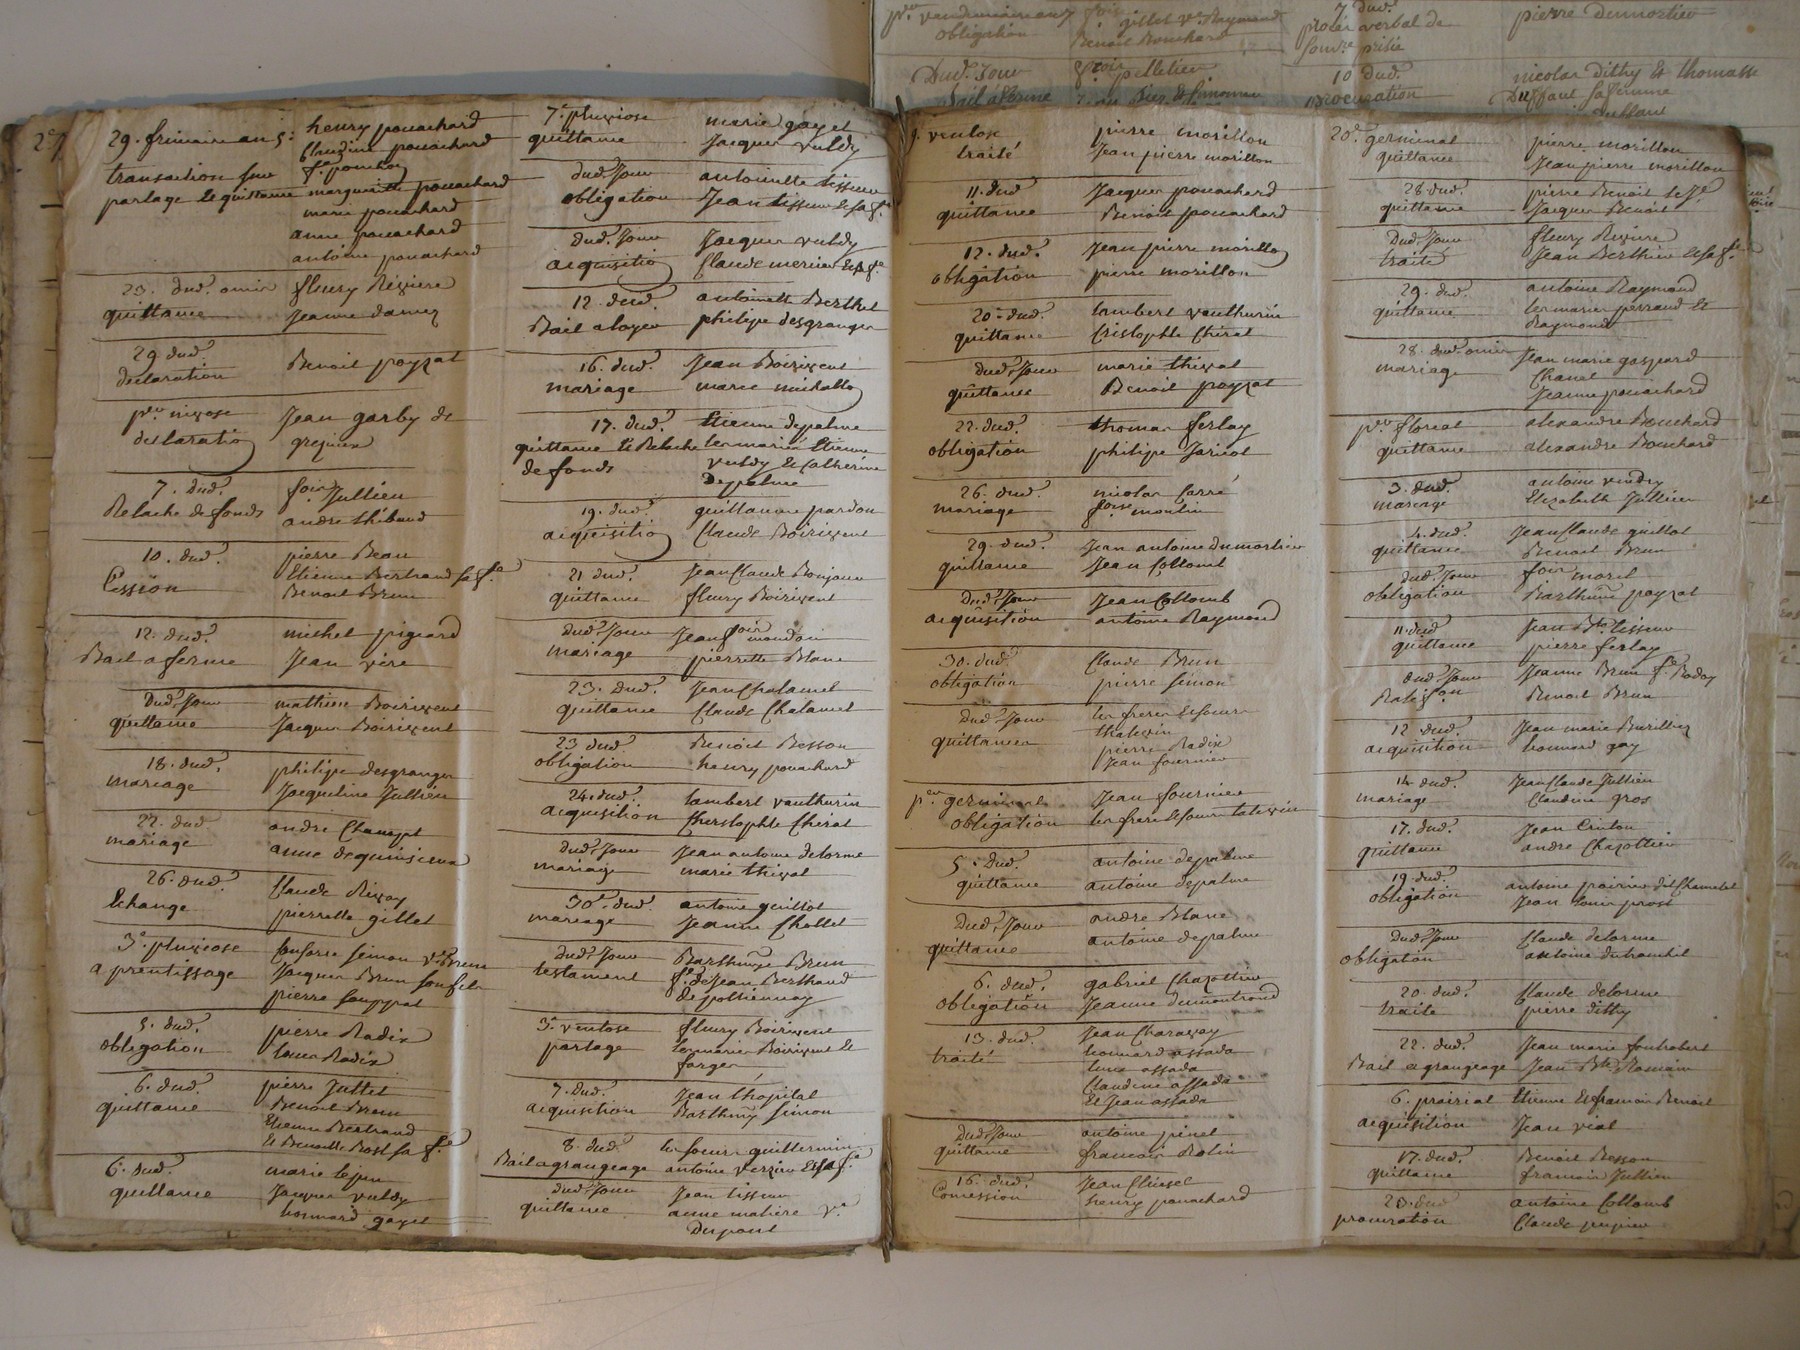 29. frimaire an 5:
transaction sur
partage et quittance
henry pouachard
Claudine pouachard
marguerite pouachard
marie pouachard
anne pouachard
antoine pouachard
23. dud. omis
quittance
fleury Riviere
29 dud.
declaration
Benoit poyzat
p.er nivose
declaration
Jean garby de
7. dud.
Relache de fonds
Jullien
andre thibaud
10. dud.
Cession
pierre Beau
Etienne Bertrand sa f.e
Benoit Brun
12. dud.
Bail a ferme
michel pigeard
Jean vire
Dud. Jour
quittance
mathieu Boirivent
Jacque Boirivent
18. dud.
mariage
philipe desgranger
Jacqueline Jullien
22. dud
mariage
andre
26. dud.
Echange
Claude Rivay
pierrette gillet
3.e pluviose
aprentissage
simon v.e Brun
Jacque Brun son fils
pierre
5. dud.
obligation
pierre Radix
Radix
6. dud.
quittance
pierre Juttet
Benoit Brun
Etienne Bertrand
et Benoitte Rost sa f.e
6. dud.
quittance
marie
Jacque vuldy
gayet
7.e pluviose
quittance
marie gayet
Jacque vuldy
dud. Jour
obligation
antoinette tisseur
Jean tisseur et sa f.e
dud. Jour
acquisition
Jacque vuldy
Claude mercier et sa f.e
12. dud.
Bail a loyer
antoinette Berthet
philipe desgranger
16. dud.
mariage
Jean Boirivent
marie
17. dud.
quittance et Relache
de fonds
Etienne depalme
les mariés Etienne
vuldy et Catherine
Depalme
19. dud.
acquisition
guillaume pardon
Claude Boirivent
21 dud.
quittance
Jean Claude Bonjour
fleury Boirivent
dud. Jour
mariage
pierrette Blanc
23. dud.
quittance
Jean Chalamel
Claude Chalamel
23 dud.
obligation
Benoit Besson
henry pouachard
24. dud.
acquisition
lambert vauthurin
Christophle Cherat
dud. Jour
mariage
Jean antoine delorme
marie thivat
30. dud.
mariage
antoine guillot
Jeanne Chollet
dud. Jour
testament
Brun
f.e de Jean Berthaud
3.e ventose
partage
fleury Boirivent
les mariés Boirivent et
farges
7. dud.
acquisition
Jean thopital
Barthmy simon
8. dud.
Bail a grangeage
les soeurs
antoine
dud. Jour
quittance
Jean tisseur
anne v.e
Dupont
9. ventose
traité
pierre morillon
Jean pierre morillon
11. dud
quittance
Jacque pouachard
Benoit pouachard
12. dud.
obligation
Jean pierre morillon
pierre morillon
20. dud.
quittance
lambert vauthurin
Cristophle Cherat
Dud. Jour
quittance
marie thivat
Benoit poyzat
22. dud.
obligation
thomas ferlay
philipe Jaricot
26. dud.
mariage
nicolas Carré
moulin
29. dud.
quittance
Jean antoine dumortier
Jean Collomb
dud. Jour
acquisition
Jean Collomb
antoine Raymond
30. dud.
obligation
Claude Brun
pierre simon
dud. Jour
quittances
les freres et soeurs
pierre Radix
Jean fournier
p.er germinal
obligation
Jean fournier
5. dud.
quittance
antoine depalme
antoine depalme
Dud. Jour
quittance
andre Blanc
antoine depalme
6. dud.
obligation
gabriel Chazottier
Jeanne dumontrond
13. dud.
traité
Jean Charavay
leonnard assada
assada
Claudine assada
et Jean assada
Dud. Jour
quittance
antoine pinet
francois Robin
16. dud.
Commission
Jean
henry pouachard
20.e germinal
quittance
pierre morillon
Jean pierre morillon
28. dud.
quittance
pierre Benoit
Jacque Benoit
Dud. Jour
traité
fleury Riviere
Jean Berthier et sa f.e
29. dud.
quittance
antoine Raymond
les maries perraud et
Raymond
28. dud. omis
mariage
Jean marie gaspard
Chanal
Jeanne pouachard
p.er floreal
quittance
alexandre Bouchard
alexandre Bouchard
3. dud.
mariage
antoine vendry
Elizabeth Jullien
4. dud.
quittance
Jean Claude guillot
Benoit Brun
dud. Jour
obligation
morel
Barthmi poyzat
11. dud
quittance
Jean B.te tisseur
pierre ferlay
dud. Jour
Jeanne Brun f.e Baday
Benoit Brun
12 dud.
acquisition
Jean marie
leonnard gay
14. dud.
mariage
Jean Claude Jullien
Claudine gros
17. dud.
quittance
Jean
andre Chazottier
19. dud.
obligation
antoine poirier dit Chamelet
Jean Louis prost
Dud. Jour
obligation
Claude delorme
antoine
20. dud.
traité
Claude delorme
pierre ditty
22. dud.
Bail a grangeage
Jean marie fontrobert
Jean B.te Romain
6. prairial
acquisition
Etienne et francois Benoit
Jean vial
17. dud.
quittance
Benoit Besson
francois Jullien
23. dud
procuration
antoine Collomb
Claude
obligation
gillet v.e Raymond
Benoit Bouchard
Dud. Jour
Bail a ferme
pelletier
7 dud.
procès verbal de
pierre Dumortier
10 dud.
procuration
nicolas ditty et thomasse
Duffaut sa femme